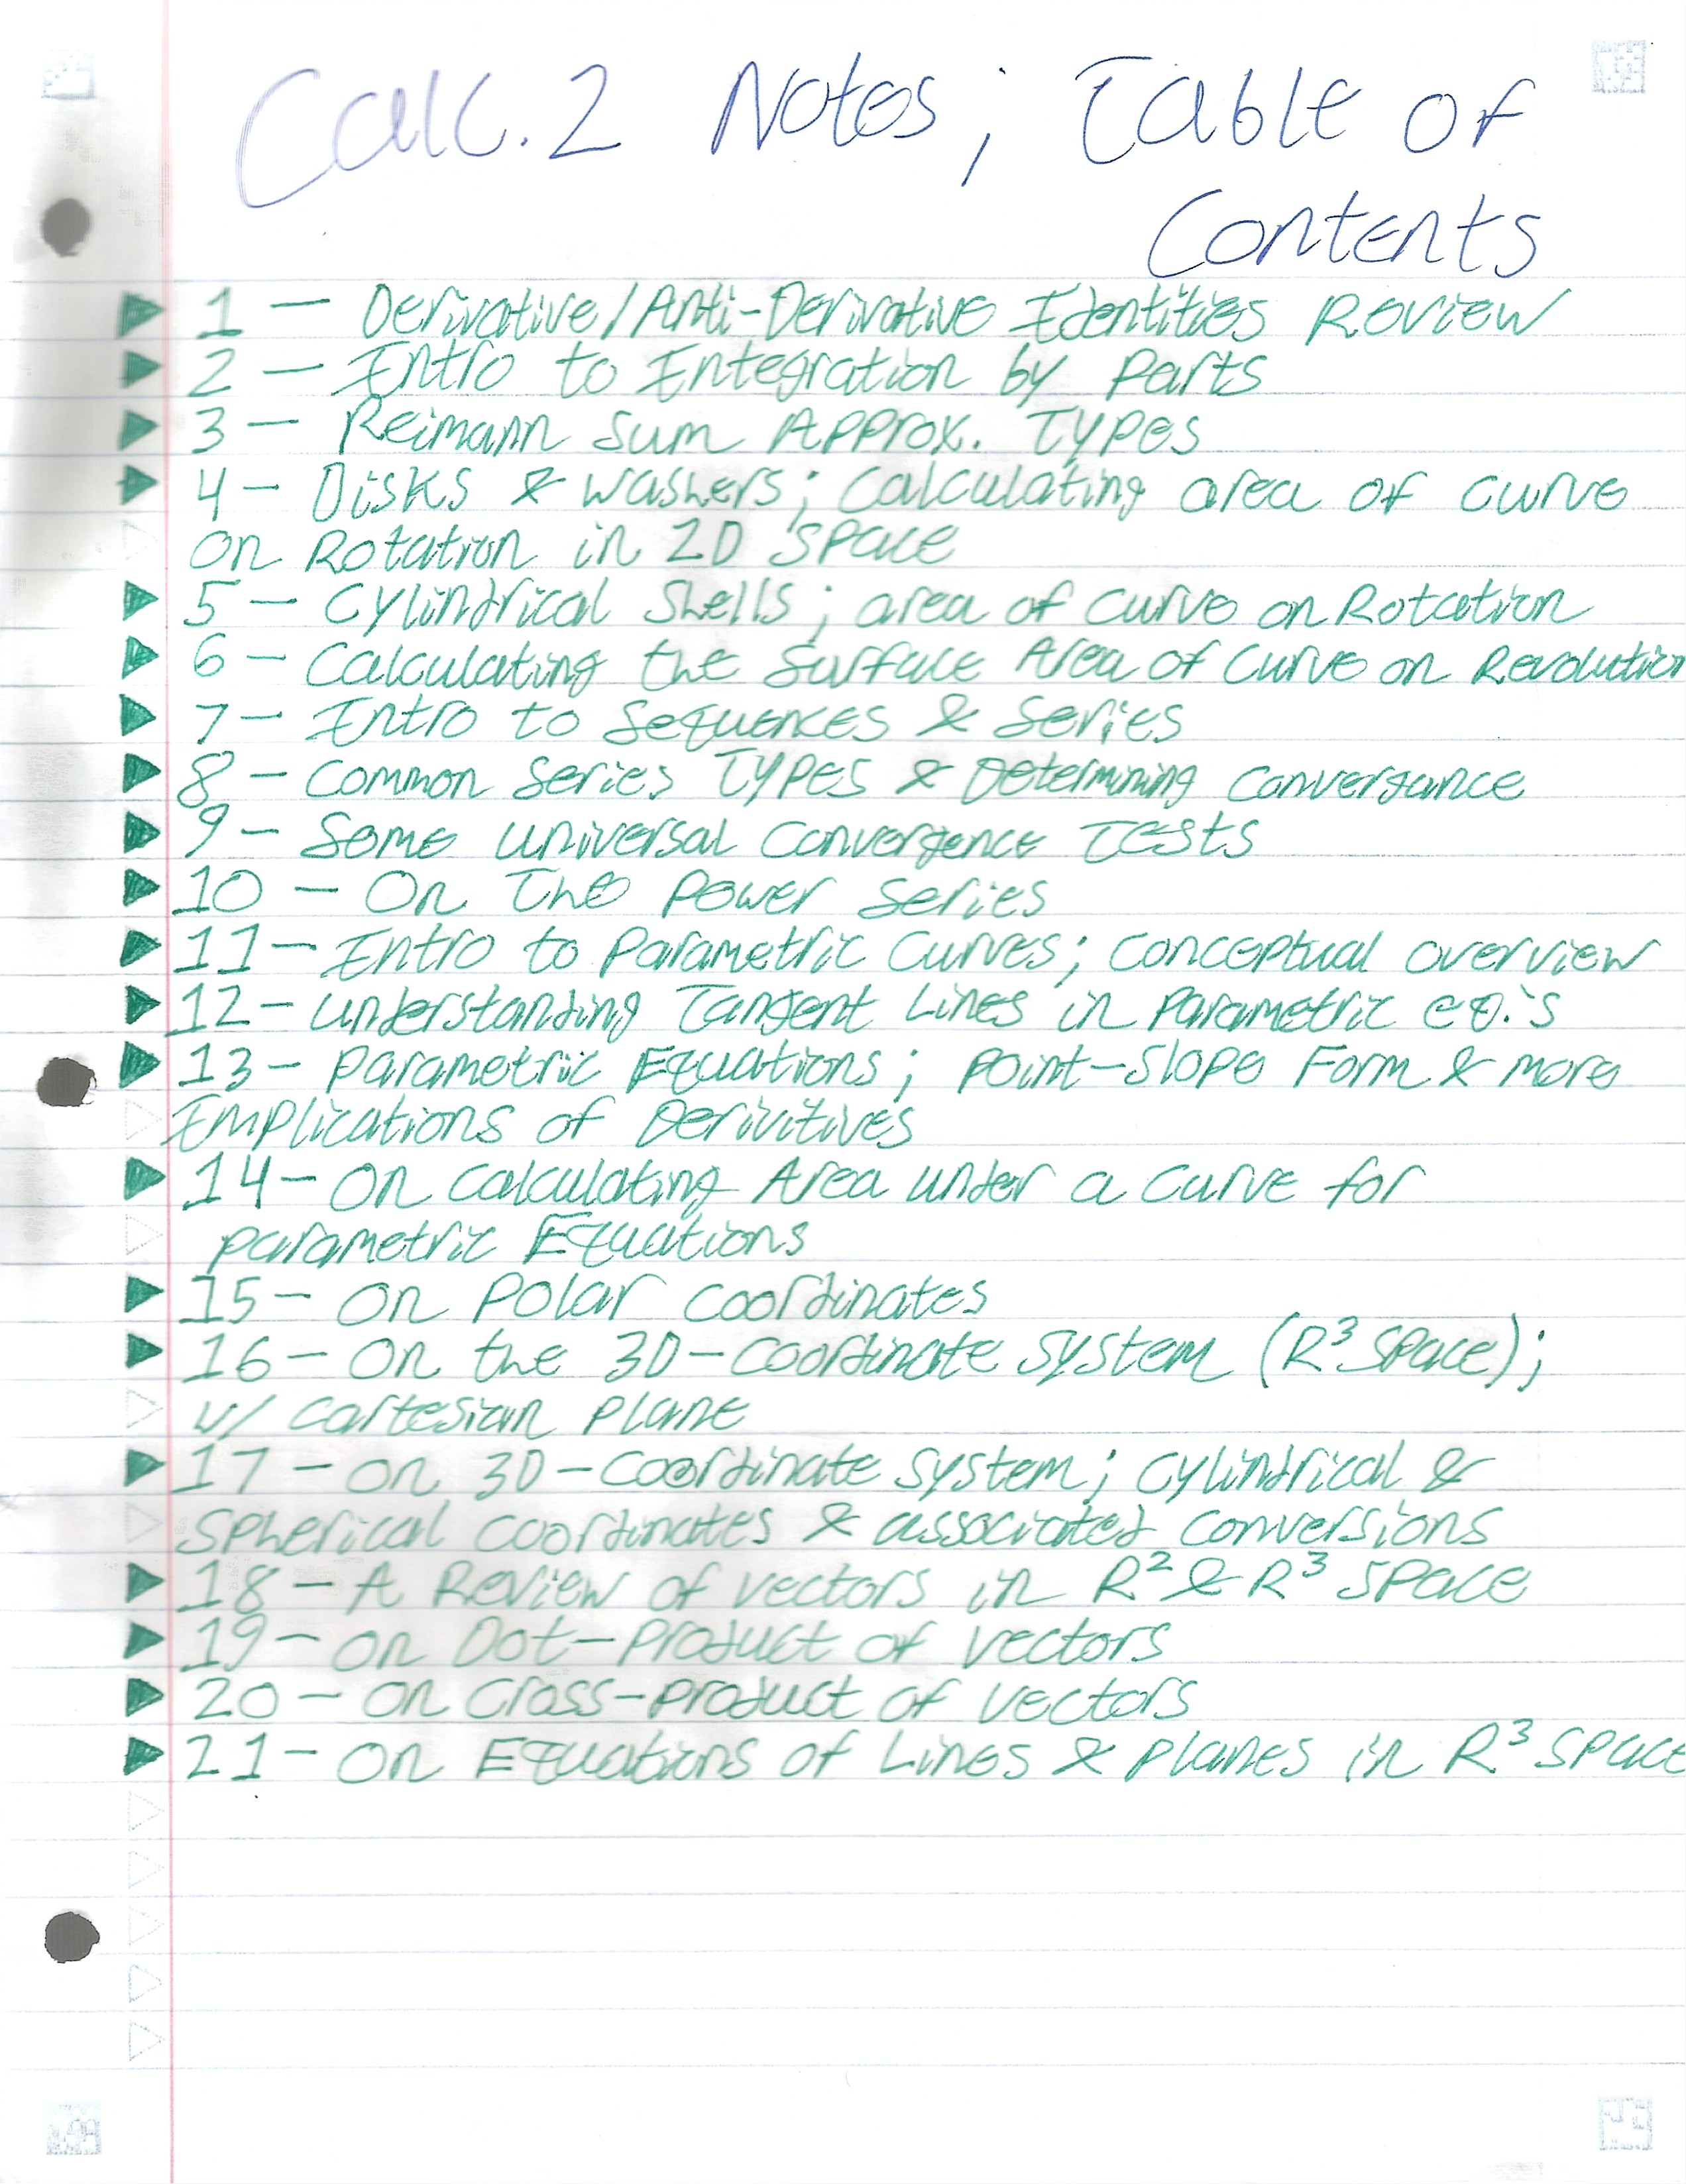 Calc. 2 Notes; Table of
Contents
1 — Derivative/Anti-Derivative Identities Review
2 — Intro to Integration by Parts
3 — Reimann Sum Approx. Types
4 — Disks & Washers; Calculating area of curve
on Rotation in 2D Space
5 — Cylindrical Shells; area of curve on Rotation
6 — Calculating the Surface Area of Curve on Revolution
7 — Intro to Sequences & Series
8 — Common Series Types & Determining Convergance
9 — Some Universal Convergence Tests
10 — On The Power Series
11 — Intro to Parametric Curves; Conceptual overview
12 — Understanding Tangent Lines in Parametric eq.'s
13 — Parametric Equations; Point-Slope Form & more
Implications of Derivitives
14 — On Calculating Area under a Curve for
parametric Equations
15 — On Polar Coordinates
16 — On the 3D-Coordinate System (R³ Space);
w/ Cartesian Plane
17 — On 3D-Coordinate System; Cylindrical &
Spherical Coordinates & associated Conversions
18 — A Review of Vectors in R² & R³ Space
19 — On Dot-Product of Vectors
20 — On Cross-Product of Vectors
21 — On Equations of Lines & Planes in R³ Space